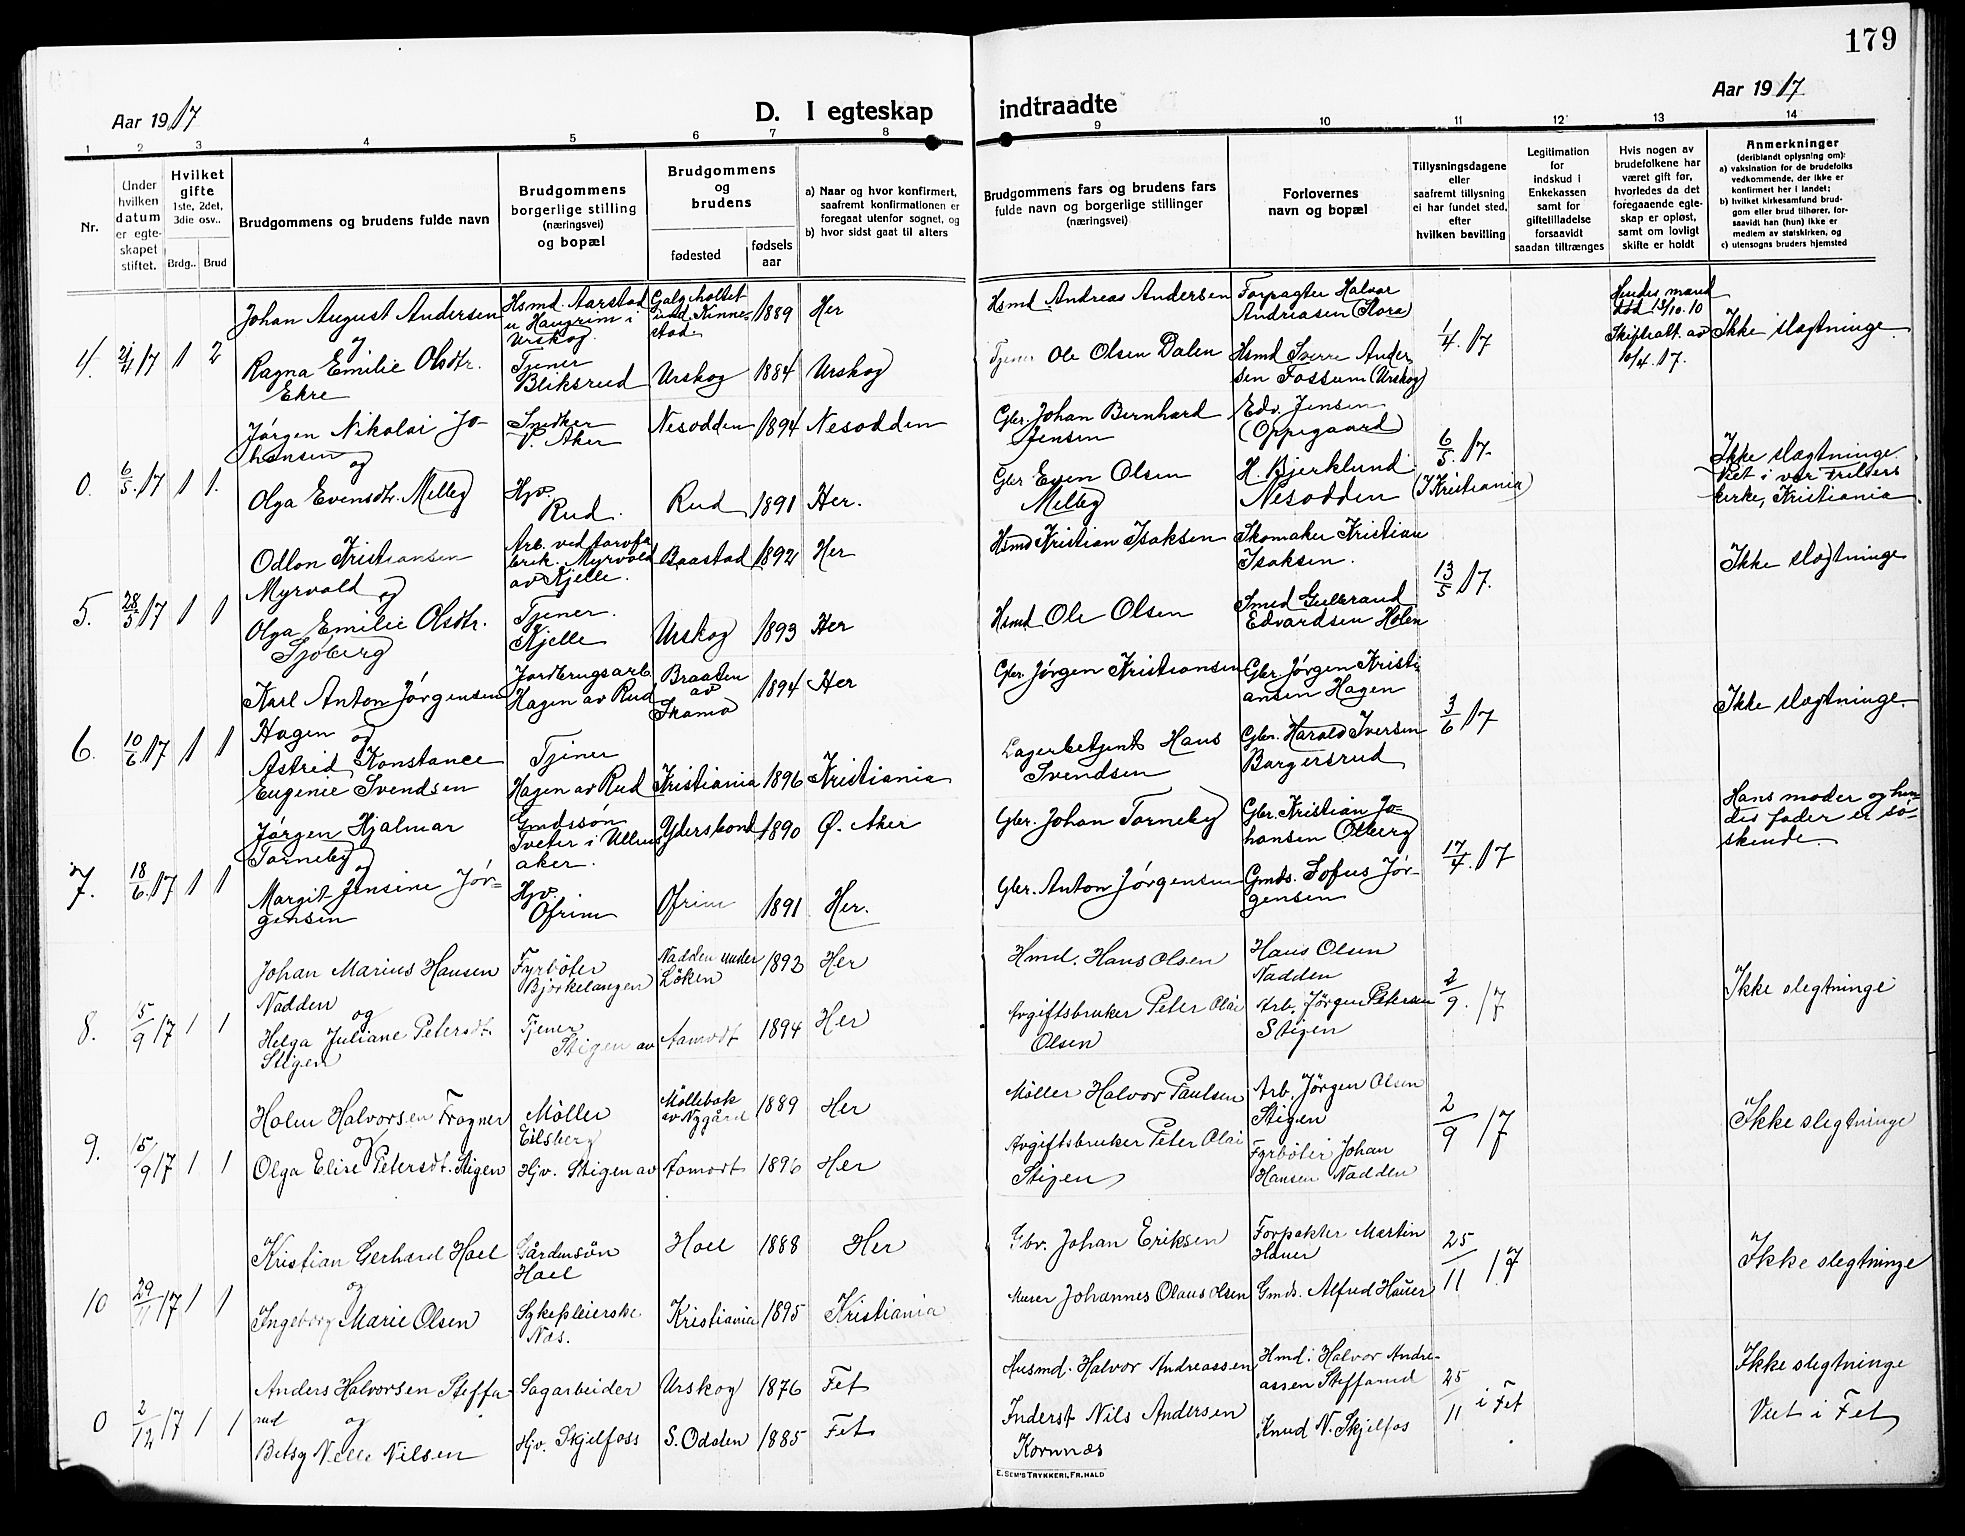 179
Aar 1917
D. I egteskap
indtraadte
Aar 1917
1 2 3 4 5 6 7 8 9 10 11 12 13 14
Nr.
Under hvilken datum er egteskapet stiftet.
Hvilket gifte
1ste, 2det, 3die osv..
Brdg.. Brud
Brudgommens og brudens fulde navn
Brudgommens borgerlige stilling (næringsvei) og bopæl
Brudgommens og brudens
fødested
fødsels aar
a) Naar og hvor konfirmert, saafremt konfirmationen er foregaat utenfor sognet, og
b) hvor sidst gaat til alters
Brudgommens fars og brudens fars fulde navn og borgerlige stillinger (næringsvei)
Forlovernes navn og bopæl
Tillysningsdagene eller saafremt tillysning ei har fundet sted, efter hvilken bevilling
Legitimation for indskud i Enkekassen samt for giftetilladelse forsaavidt saadan tiltrænges
Hvis nogen av brudefolkene har været gift før, hvorledes da det foregaaende egteskap er opløst, samt om lovligt skifte er holdt
Anmerkninger
(deriblandt oplysning om):
a) vaksination for de brudefolks vedkommende, der ikke er konfirmert her i landet;
b) hvilket kirkesamfund brudgom eller brud tilhører, forsaavidt han (hun) ikke er medlem av statskirken, og
c) utensogns bruders hjemsted
4. 21/4 17 1 2
Johan August Andersen
og
Ragna Emilie Olsdtr.
Ekre
Hsmd. Aarstad
u Haugrim i
Urskog
Tjener
Bliksrud
Galgeholtet
und. Kinne-
stad
1889 Her
Urskog 1884 Urskog
Hsmd Andreas Andersen
Tjener Ole Olsen Dalen
Forpagter Halvor
Andreasen (Hora)
Hsmd Sverre Ander
sen Fossum (Urskog)
1/4. 17
Hendes mand
død 13/10.10
Skifteatt. av
10/4. 17.
Ikke slægtninge
0. 6/5. 17 1 1.
Jørgen Nikolai Jo-
hansen
og
Olga Evensdtr. Melby
Snedker
V. Aker
Hjv.
Rud.
Nesodden 1894 Nesodden
Rud 1891 Her.
Gbr Johan Bernhard
Jensen
Gbr Even Olsen
Melby
Edv. Jensen
(Oppegaard)
H. Bjerklund
Nesodden
6/5. 17.
(I Kristiania)
Ikke slægtninge.
Viet i vor Frelsers
kirke, Kristiania
5. 28/5 17 1 1
Odlon Kristiansen
Myrvold og
Olga Emilie Olsdtr.
Sjøberg
Arb. ved torvfa
brik. Myrvold
av Kjelle.
Tjener.
Kjelle
Baastad 1892 Her
Urskog 1893 Her
Hsmd Kristian Isaksen
Hsmd Ole Olsen
Skomaker Kristian
Isaksen.
Smed Gulbrand
Edvardsen Holen
13/5 17.
Ikke slægtninge
6. 10/6 17 1 1
Karl Anton Jørgensen
Hagen og
Astrid Konstance
Eugenie Svendsen
Jordbrugsarb
Hagen av Rud
Tjener
Hagen av Rud
Braaten
av
1894 Her
Kristiania 1896 Kristiania
Gbr. Jørgen Kristiansen
Lagerbetjent Hans
Svendsen
Gbr Jørgen Kristi
ansen Hagen
Gbr. Harald Iversen
Bargersrud
3/6 17
Ikke slægtninge.
7. 18/6. 17 1 1
Jørgen Hjalmar
Torneby og
Margit Jensine Jør-
gensen
Gmdssøn
Tveter i Ullens
aker.
Hjv.
Ofrim
1890 Ø. Aker
Ofrim 1891 Her.
Gbr. Johan Torneby
Gbr. Anton Jørgensen
Gbr. Kristian Jo-
hansen Olberg
Gmds. Sofus Jør-
gensen
17/4. 17
Hans moder og hen
des fader er sø-
skende.
8. 15/9 17 1 1
Johan Marius Hansen
Nadden
og
Helga Juliane Petersdt.
Stigen
Fyrbøter
Bjørkelangen
Tjener
Stigen av
Nadden under
Løken
1893 Her
Aamodt 1894 Her
Hmd. Hans Olsen
Avgiftsbruker Peter Olai
Olsen
Hans Olsen
Nadden
Arb. Jørgen Petersen
Stigen
2/9. 17
Ikke slegtninge
9. 15/9 17 1 1
Holm Halvorsen Frogner
og
Olga Elise Petersdt. Stigen
Møller
Eilsberg
Hjv. Stigen av
Møllebak
av Nygård
1889 Her
Aamodt 1896 Her
Møller Halvor Paulsen
Avgiftsbruker Peter Olai
Stigen
Arb. Jørgen Olsen
Stigen
Fyrbøter Johan
Hansen Nadden
2/9 17
Ikke slegtninge
10 29/11 17 1 1
Kristian Gerhard Hoel
og
Ingeborg Marie Olsen
Gårdersøn
Hoel
Sykepleierske
Næs.
Hoel 1888 Her
Kristiania 1895 Kristiania
Gbr. Johan Eriksen
Murer Johannes Olaus Olsen
Forpakter Martin
Hauer
Gmds. Alfred Hauer
25/11 17
Ikke slegtninge
0 2/12 17 1 1
Anders Halvorsen Steffa-
rud og
Betsy Nelle Nilsen
Sagarbeider
Hjv. Skjelfoss
Urskog 1876 Fet
S. Odalen 1885 Fet
Husmd. Halvor Andreassen
Inderst Nils Andersen
Kornnæs
Hmd. Halvor Andre-
assen Steffarud
Knud N. Skjelfos
25/11 i Fet
Ikke slegtninge
Viet i Fet
E. SEM'S TRYKKERI, FR. HALD